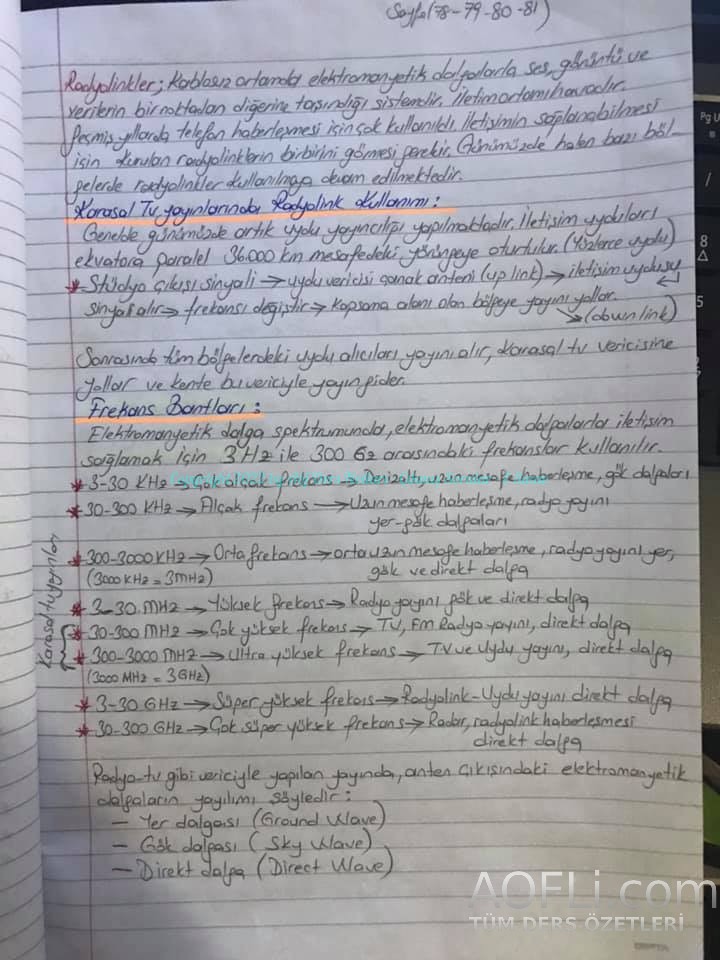 Sayfa (78-79-80-81)
Radyolinkler; Kablosuz ortamda elektromanyetik dalgalarla ses, görüntü ve
verilerin bir noktadan diğerine taşındığı sistemdir. İletim ortamı havadır.
Geçmiş yıllarda telefon haberleşmesi için çok kullanıldı. İletişimin sağlanabilmesi
için kurulan radyolinklerin birbirini görmesi gerekir. Günümüzde halen bazı böl-
gelerde radyolinkler kullanılmaya devam edilmektedir.
Karasal Tv yayınlarında Radyolink Kullanımı:
Genelde günümüzde artık uydu yayıncılığı yapılmaktadır. İletişim uyduları
ekvatora paralel 36.000 km mesafedeki yörüngeye oturtulur. (Yüzlerce uydu)
* Stüdyo çıkışı sinyali → uydu vericisi çanak anteni (up link) → iletişim uydusu
sinyali alır → frekansı değiştir → kapsama alanı olan bölgeye yayını yollar.
(down link)
Sonrasında tüm bölgelerdeki uydu alıcıları yayını alır, karasal tv vericisine
yollar ve kente bu vericiyle yayın gider.
Frekans Bantları:
Elektromanyetik dalga spektrumunda, elektromanyetik dalgalarla iletişim
sağlamak için 3 Hz ile 300 Gz arasındaki frekanslar kullanılır.
* 3-30 KHz → Çok alçak frekans → Denizaltı, uzun mesafe haberleşme, gök dalgaları
* 30-300 KHz → Alçak frekans → Uzun mesafe haberleşme, radyo yayını
yer-gök dalgaları
* 300-3000 KHz → Orta frekans → orta uzun mesafe haberleşme, radyo yayını yer,
(3000 KHz = 3 MHz) gök ve direkt dalga
* 3-30 MHz → Yüksek frekans → Radyo yayını gök ve direkt dalga
Karasal tv yayınları
* 30-300 MHz → Çok yüksek frekans → TV, FM Radyo yayını, direkt dalga
* 300-3000 MHz → Ultra yüksek frekans → TV ve Uydu yayını, direkt dalga
(3000 MHz = 3 GHz)
* 3-30 GHz → Süper yüksek frekans → Radyolink-Uydu yayını direkt dalga
* 30-300 GHz → Çok süper yüksek frekans → Radar, radyolink haberleşmesi
direkt dalga
Radyo-tv gibi vericiyle yapılan yayında, anten çıkışındaki elektromanyetik
dalgaların yayılımı şöyledir:
- Yer dalgası (Ground Wave)
- Gök dalgası (Sky Wave)
- Direkt dalga (Direct Wave)
AOFLi.com
TÜM DERS ÖZETLERİ
Pg U
/
8
5